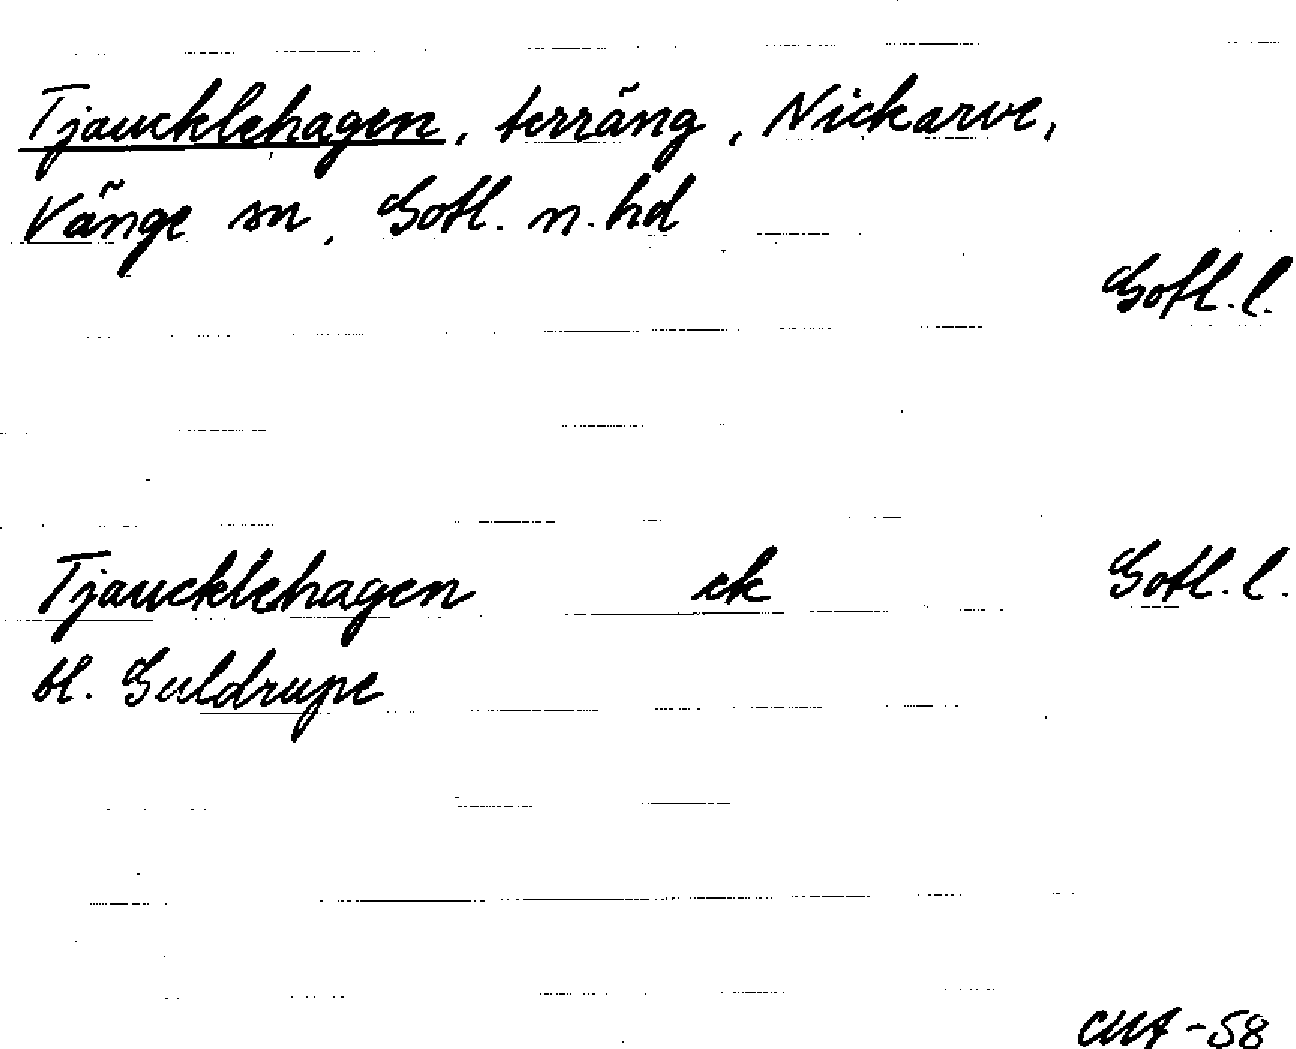 Tjaucklehagen, terräng, Nickarve,
Vänge sn, Gotl. n. hd
Gotl. l.
Tjaucklehagen ek Gotl. l.
bl. Guldrupe
CMA -58